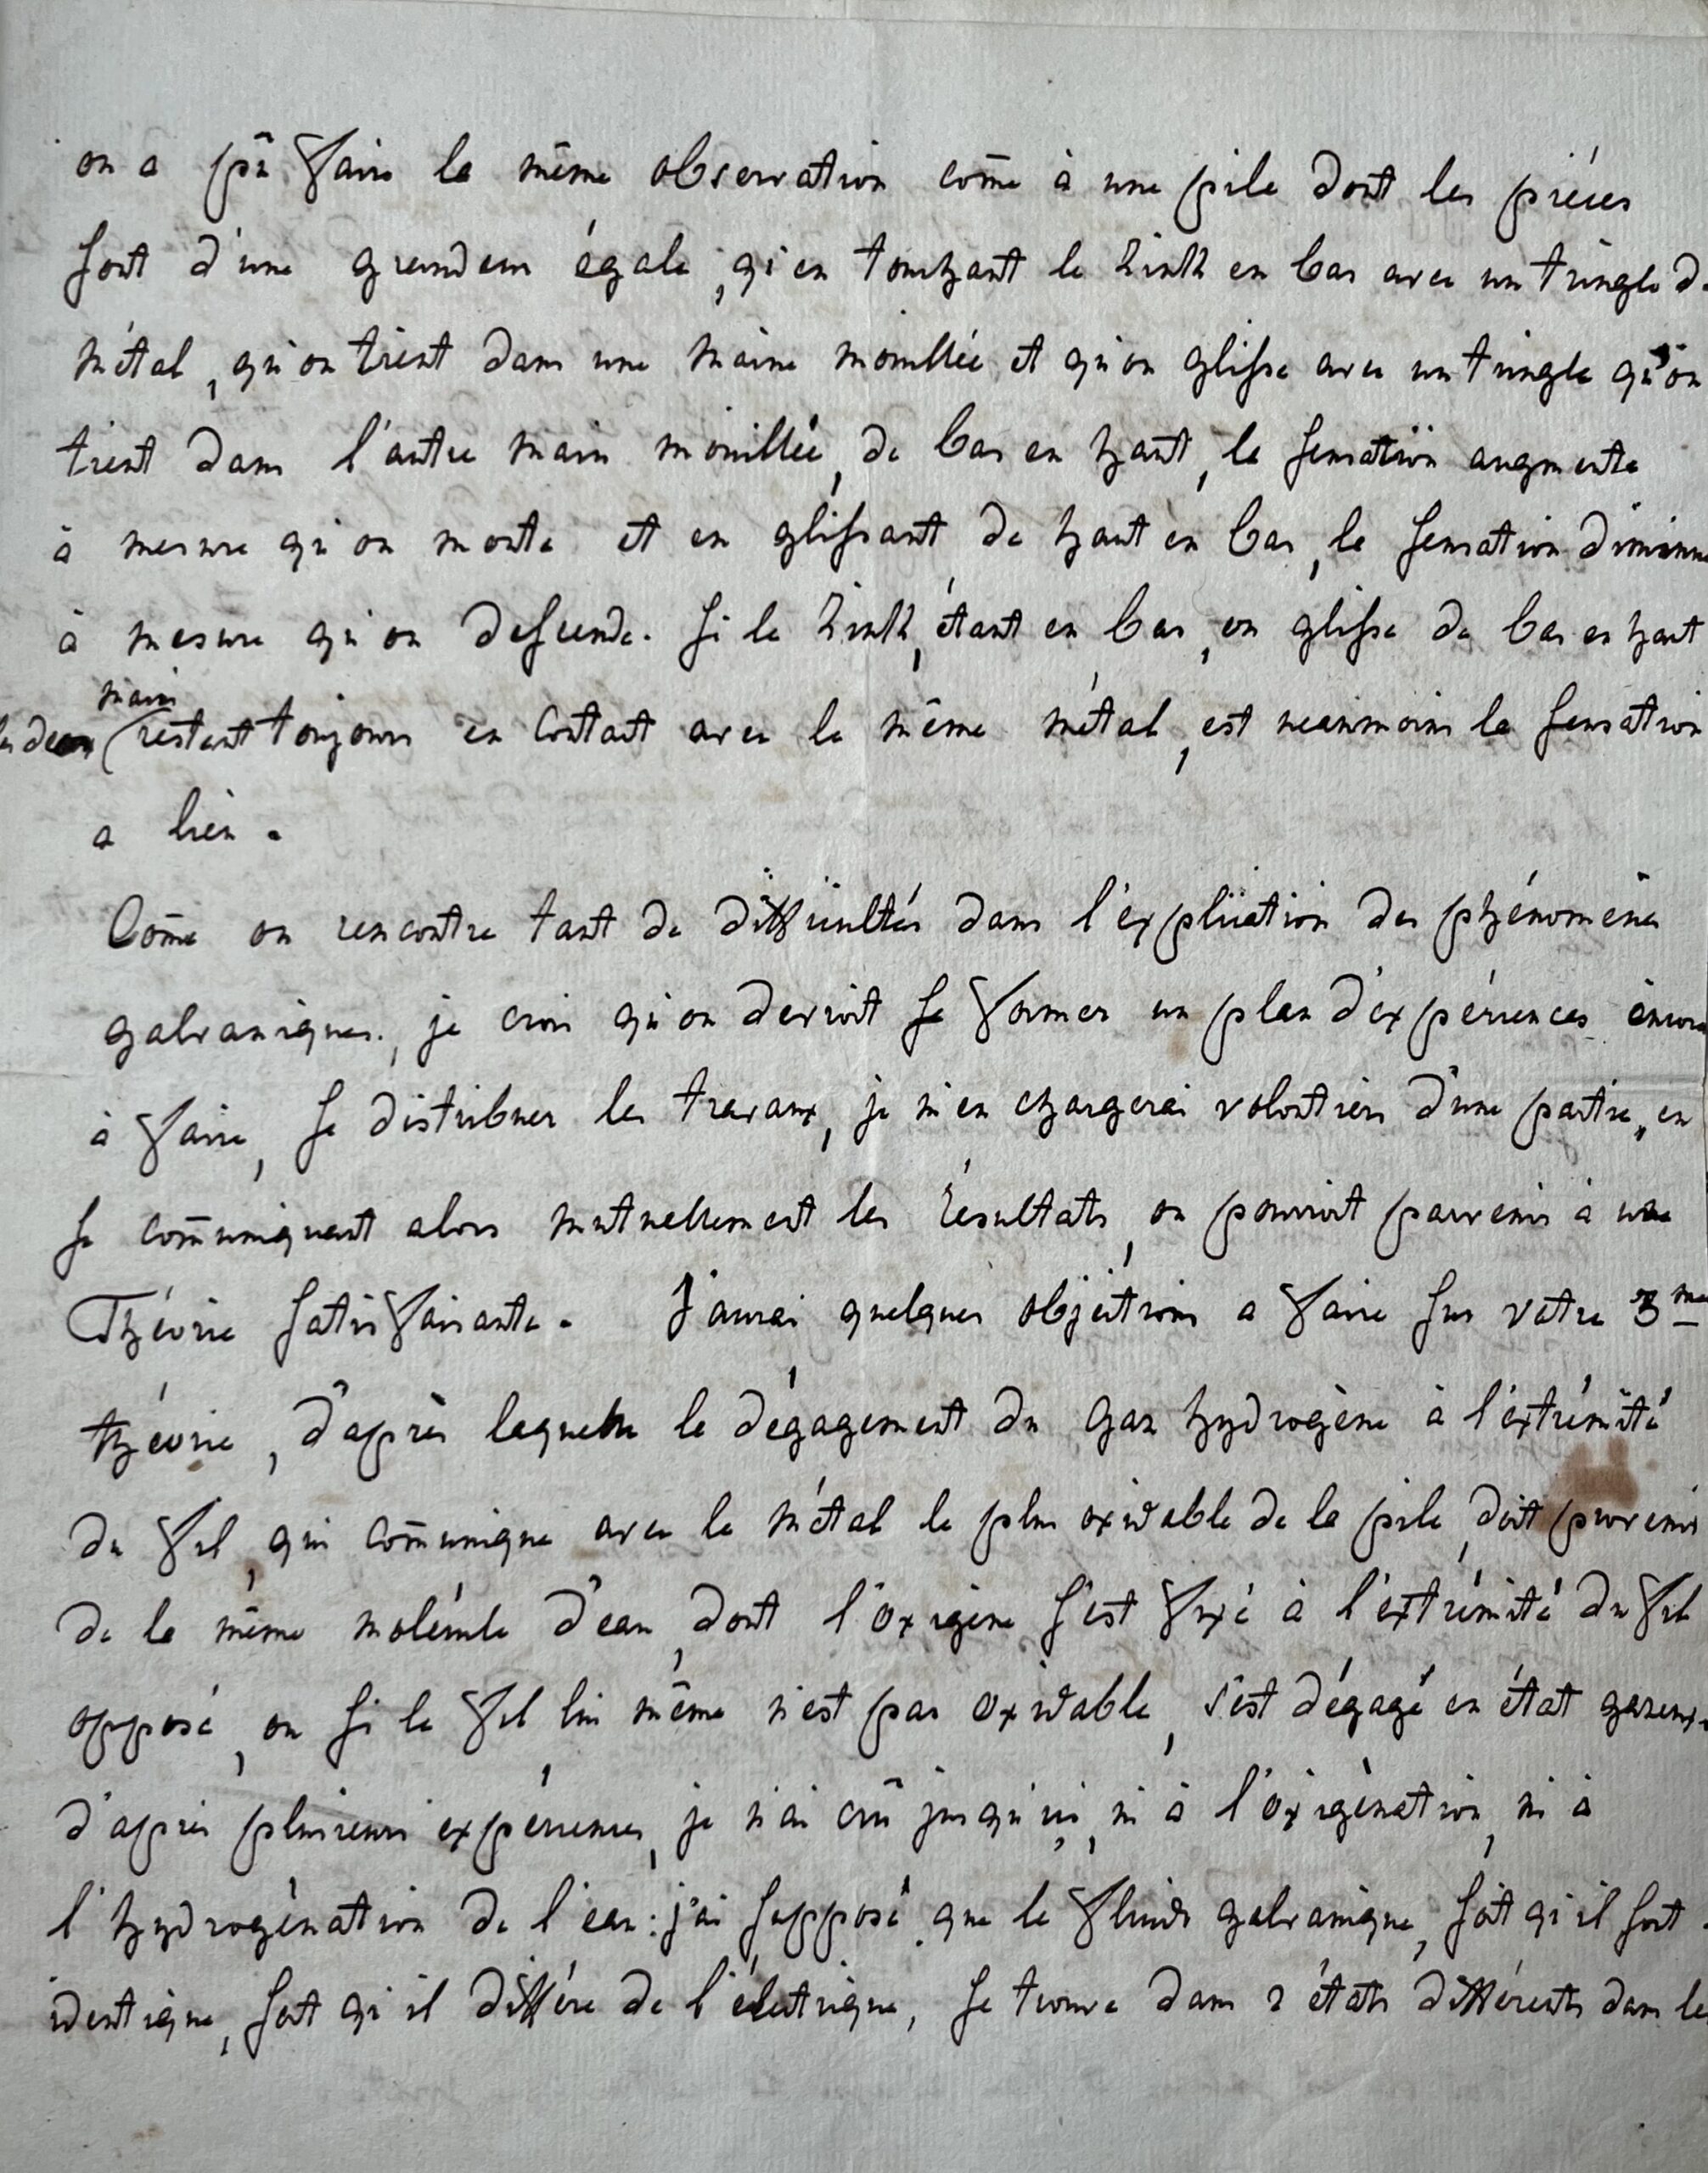 on a pû faire la même observation com̄e à une pile dont les piéces
sont d'une grandeur égale, qi'en touchant le Zink en bas avec un tringle d
métal, qu'on tient dans une maine mouillée et qu'on glisse avec un tringle qu'on
tient dans l'autre main mouillée, de bas en haut, la sensation augmente
à mesure qu'on monte et en glissant de haut en bas, la sensation diminue
à mesure qu'on descende. Si le Zink, étant en bas, on glisse de bas en haut
main
les deux restant toujours en Contact avec le même métal, est neanmoins la sensation
a lieu.
Com̄e on rencontre tant de difficultés dans l'explication des phénomènes
galvaniques, je crois qu'on devroit se former un plan d'expériences encore
à faire, se distribuer les travaux, je m'en chargerai volontiers d'une partie, en
se com̄uniquant alors mutuellement les résultats, on pourroit parvenir à une
Théorie satisfaisante. J'aurai quelques objections a faire sur votre 3me
théorie, d'après laquelle le dégagement du Gaz hydrogène à l'extrémité
du fil, qui com̄unique avec le métal le plus oxidable de la pile, doit provenir
de la même molécule d'eau, dont l'oxigène s'est fixé à l'extrémité du fil
opposé, ou si le fil lui même n'est pas oxidable, s'est dégagé en état gazeux.
d'après plusieurs expériences, je n'ai crû jusqu'ici, ni à l'oxigènation, ni à
l'hydrogènation de l'eau: j'ai supposé que le fluide galvanique, soit qi'il soit
identique, soit qi'il diffère de l'électrique, se trouve dans 2 états différents dans le